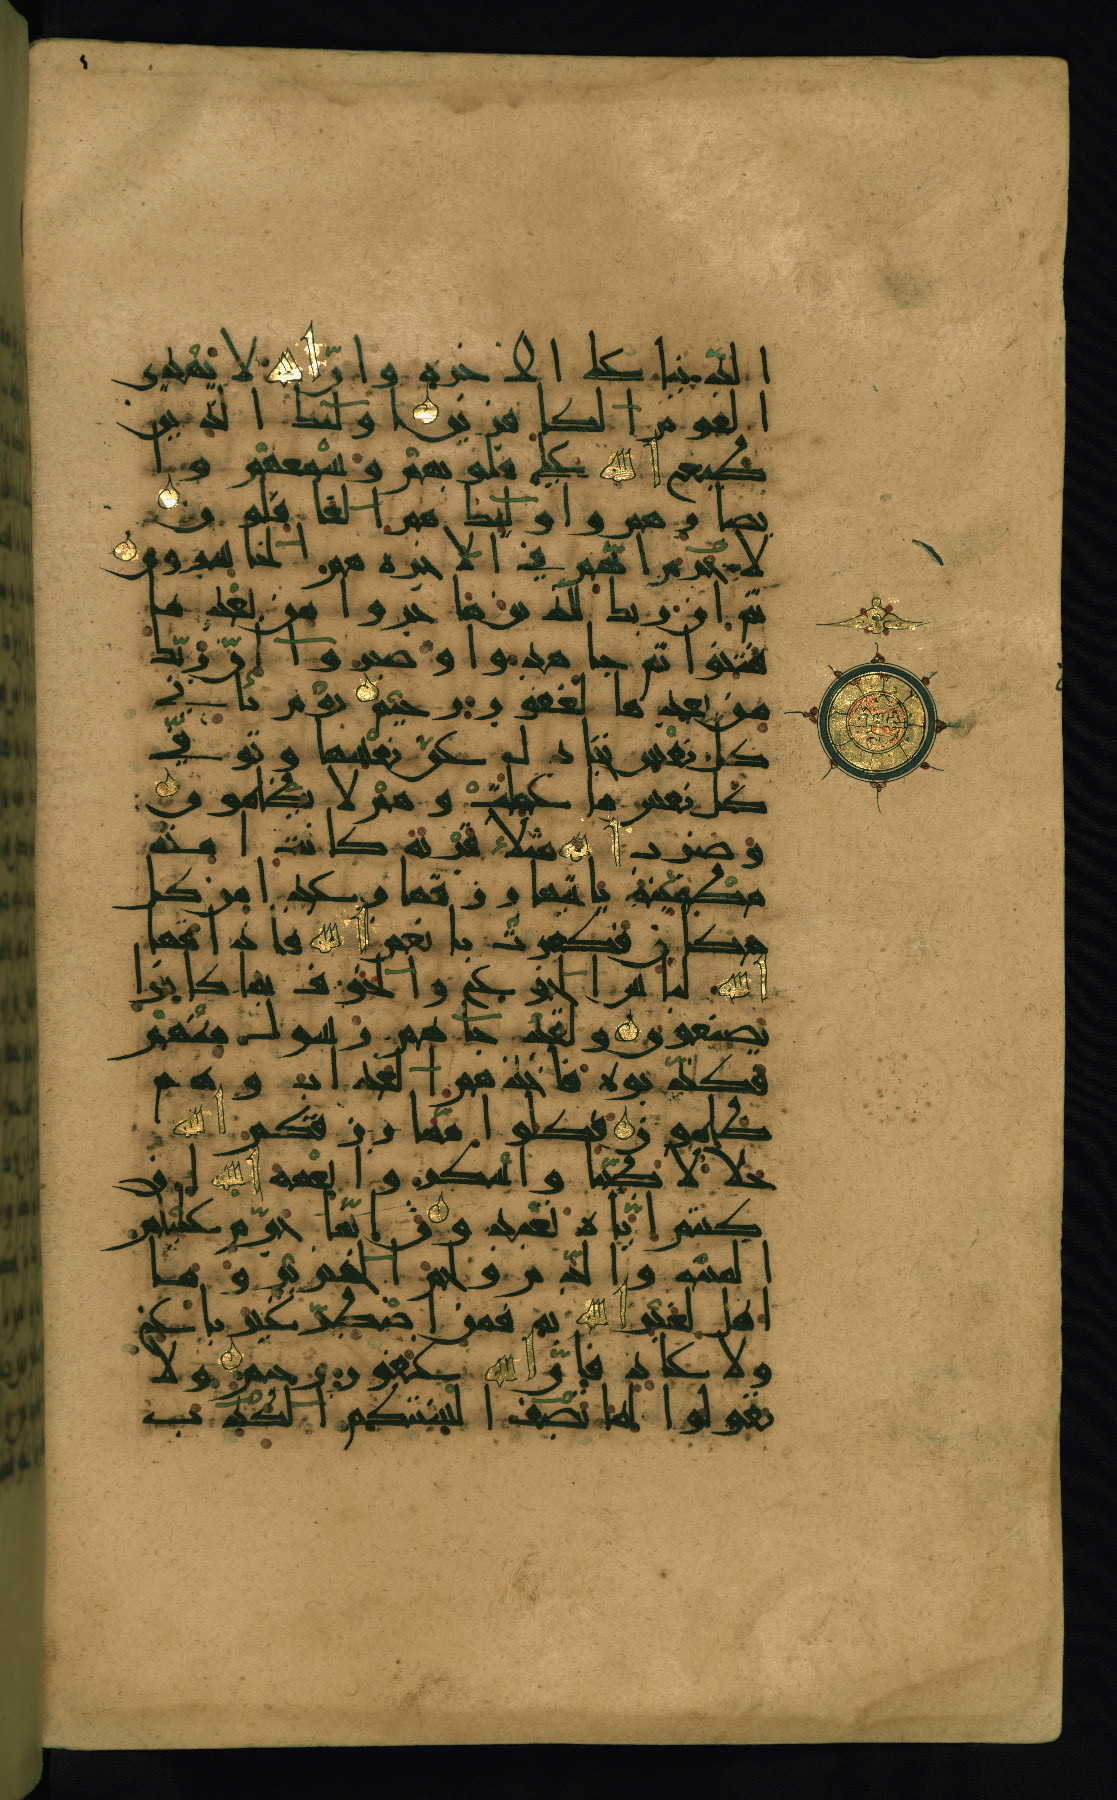 الدنيا على الاخرة وان الله لا يهدي
القوم الكافرين اولئك الذين
طبع الله على قلوبهم وسمعهم وا
بصارهم واولئك هم الغافلون
لا جرم انهم في الاخرة هم الخاسرون
ثم ان ربك للذين هاجروا من بعد ما
فتنوا ثم جاهدوا وصبروا ان ربك
من بعدها لغفور رحيم يوم تأتي
كل نفس تجادل عن نفسها وتوفى
كل نفس ما عملت وهم لا يظلمون
وضرب الله مثلا قرية كانت امنة
مطمئنة ياتيها رزقها رغدا من كل
مكان فكفرت بانعم الله فاذاقها
الله لباس الجوع والخوف بما كانوا
يصنعون ولقد جاهم رسول منهم
فكذبوه فاخذهم العذاب وهم
ظلمون فكلوا مما رزقكم الله
حللا طيبا واشكروا نعمة الله ان
كنتم اياه تعبدون انما حرم عليكم
الميتة والدم ولحم الخنزير وما
اهل لغير الله به فمن اضطر غير باغ
ولا عاد فان الله غفور رحيم ولا
تقولوا لما تصف السنتكم الكذب